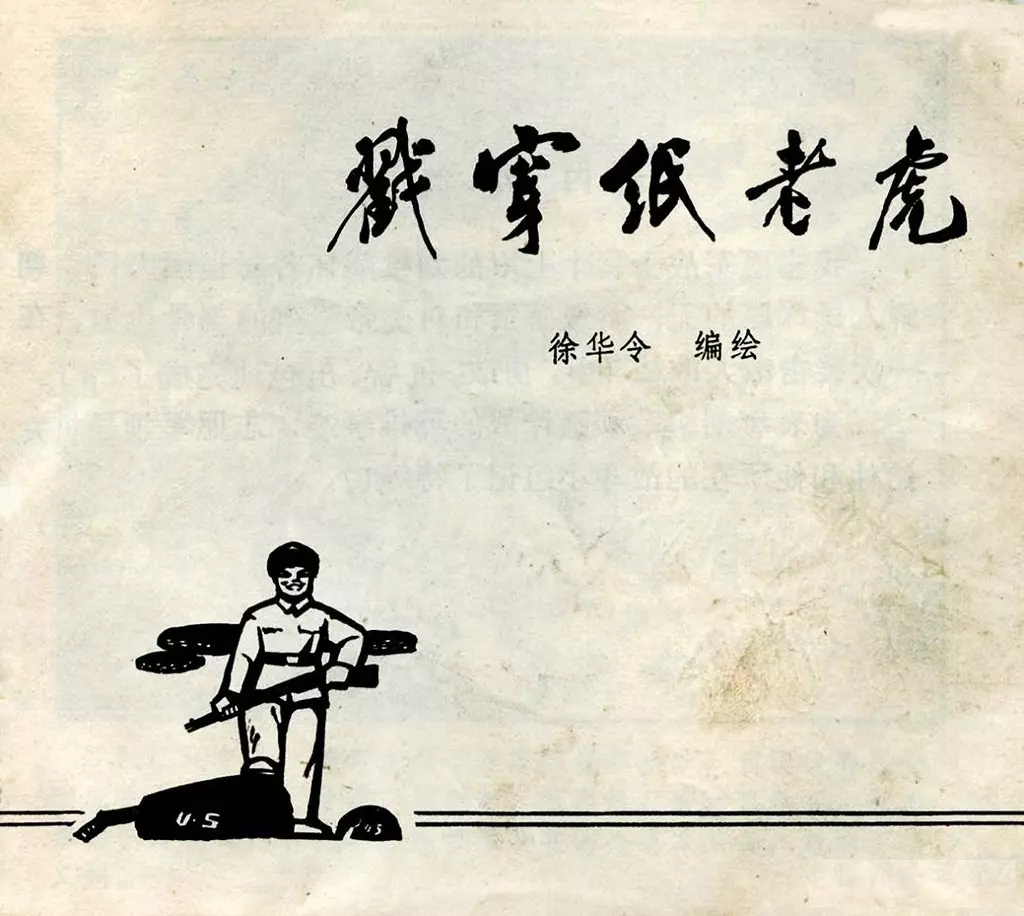 戳穿纸老虎
徐华令 编绘
U·S
U·S